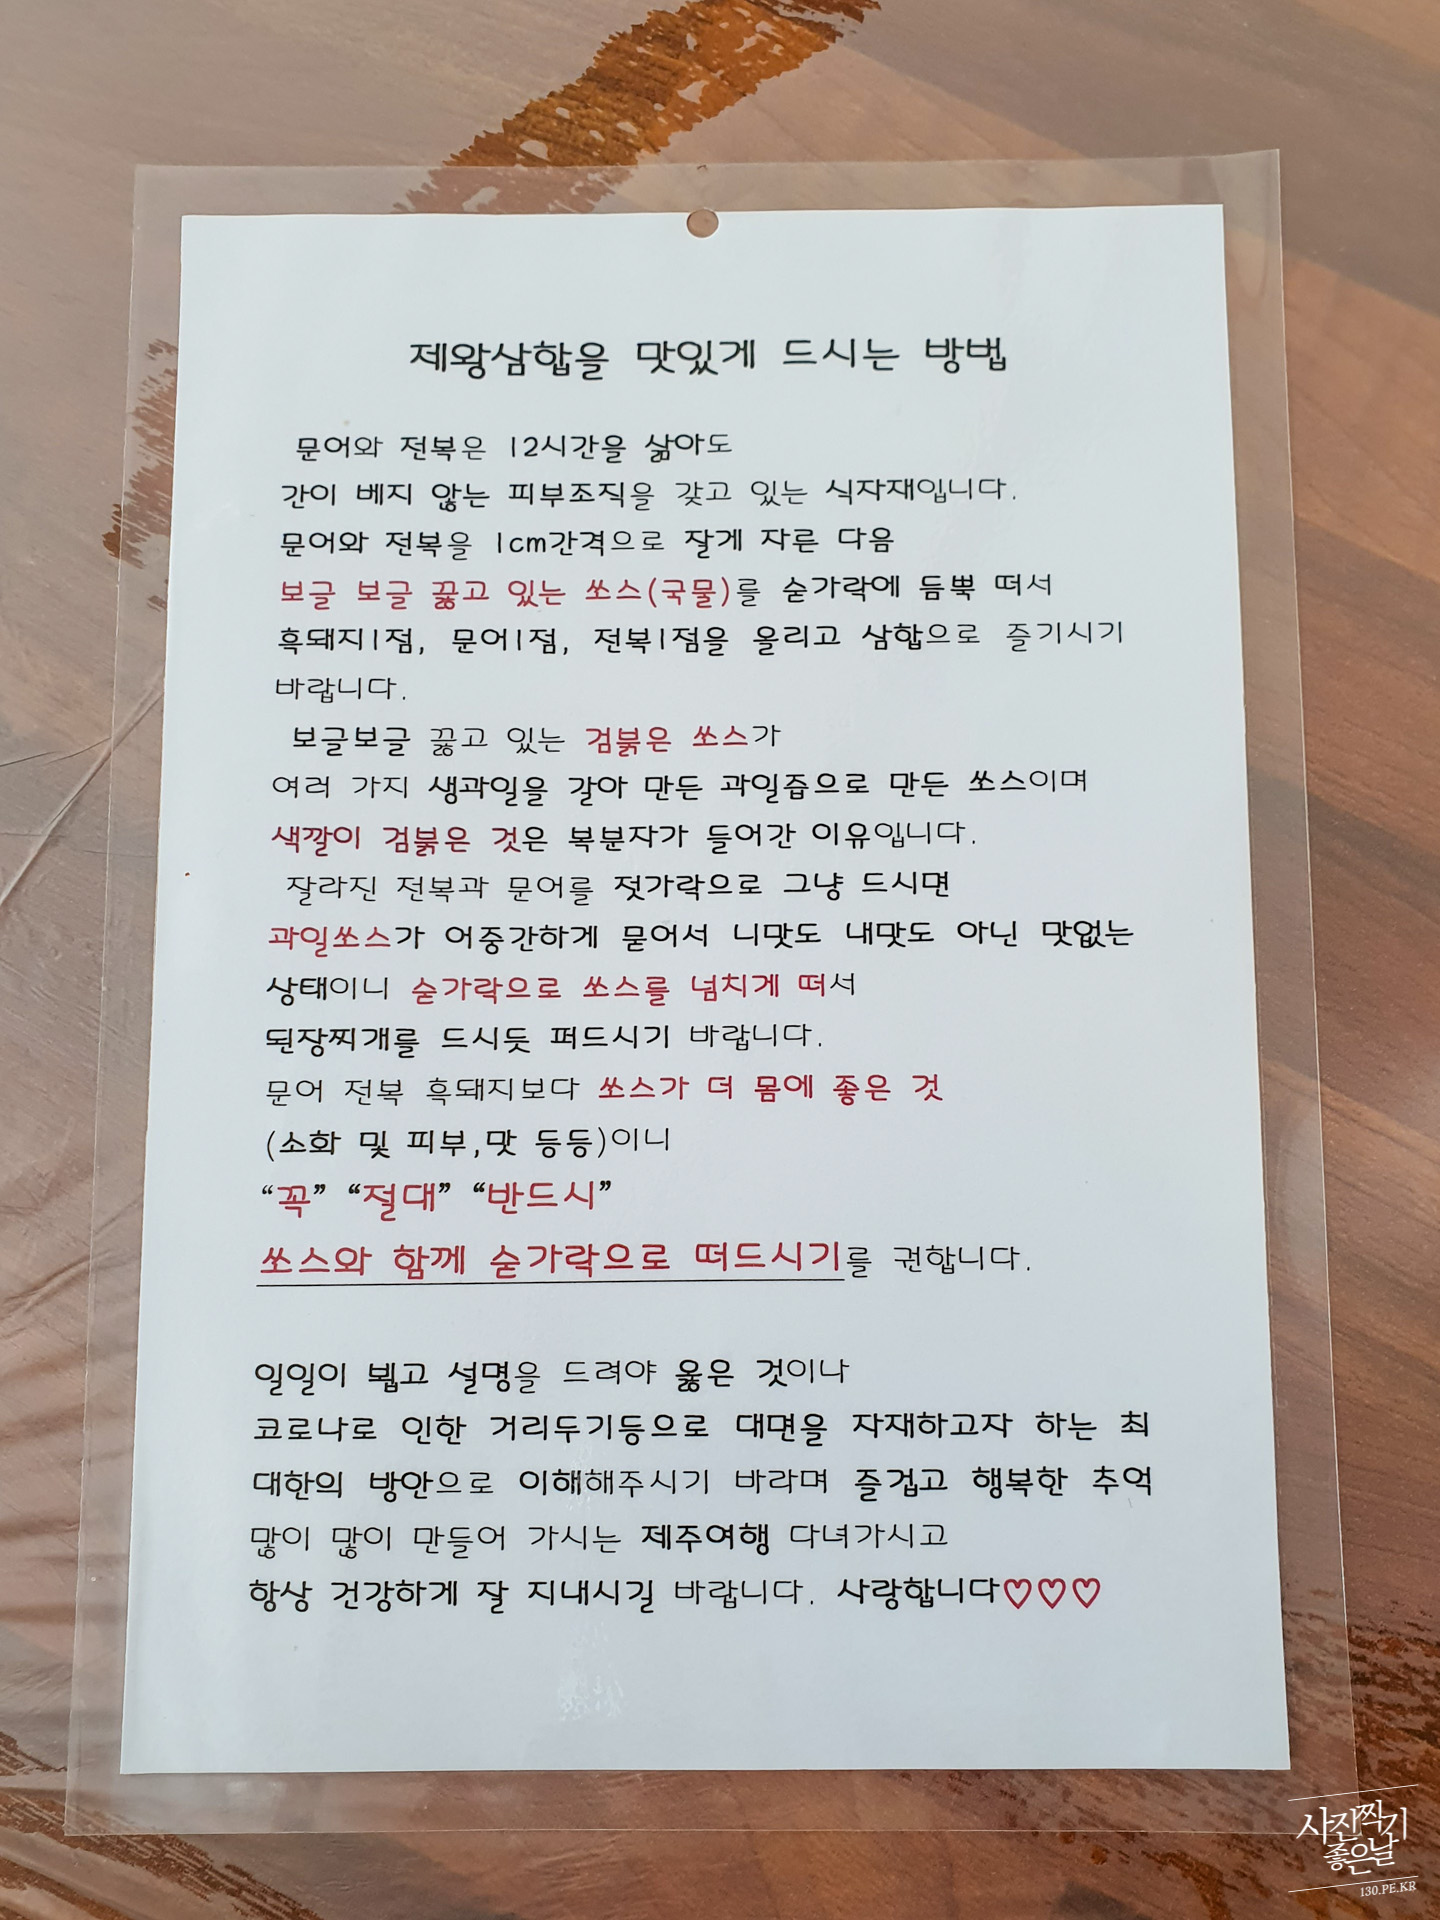 제왕삼합을 맛있게 드시는 방법
문어와 전복은 12시간을 삶아도
간이 베지 않는 피부조직을 갖고 있는 식자재입니다.
문어와 전복을 1cm간격으로 잘게 자른 다음
보글 보글 끓고 있는 쏘스(국물)를 숟가락에 듬뿍 떠서
흑돼지1점, 문어1점, 전복1점을 올리고 삼합으로 즐기시기
바랍니다.
보글보글 끓고 있는 검붉은 쏘스가
여러 가지 생과일을 갈아 만든 과일즙으로 만든 쏘스이며
색깔이 검붉은 것은 복분자가 들어간 이유입니다.
잘라진 전복과 문어를 젓가락으로 그냥 드시면
과일쏘스가 어중간하게 묻어서 니맛도 내맛도 아닌 맛없는
상태이니 숟가락으로 쏘스를 넘치게 떠서
된장찌개를 드시듯 퍼드시기 바랍니다.
문어 전복 흑돼지보다 쏘스가 더 몸에 좋은 것
(소화 및 피부,맛 등등)이니
“꼭” “절대” “반드시”
쏘스와 함께 숟가락으로 떠드시기를 권합니다.
일일이 뵙고 설명을 드려야 옳은 것이나
코로나로 인한 거리두기등으로 대면을 자재하고자 하는 최
대한의 방안으로 이해해주시기 바라며 즐겁고 행복한 추억
많이 많이 만들어 가시는 제주여행 다녀가시고
항상 건강하게 잘 지내시길 바랍니다. 사랑합니다♡♡♡
사진찍기
좋은날
130.PE.KR